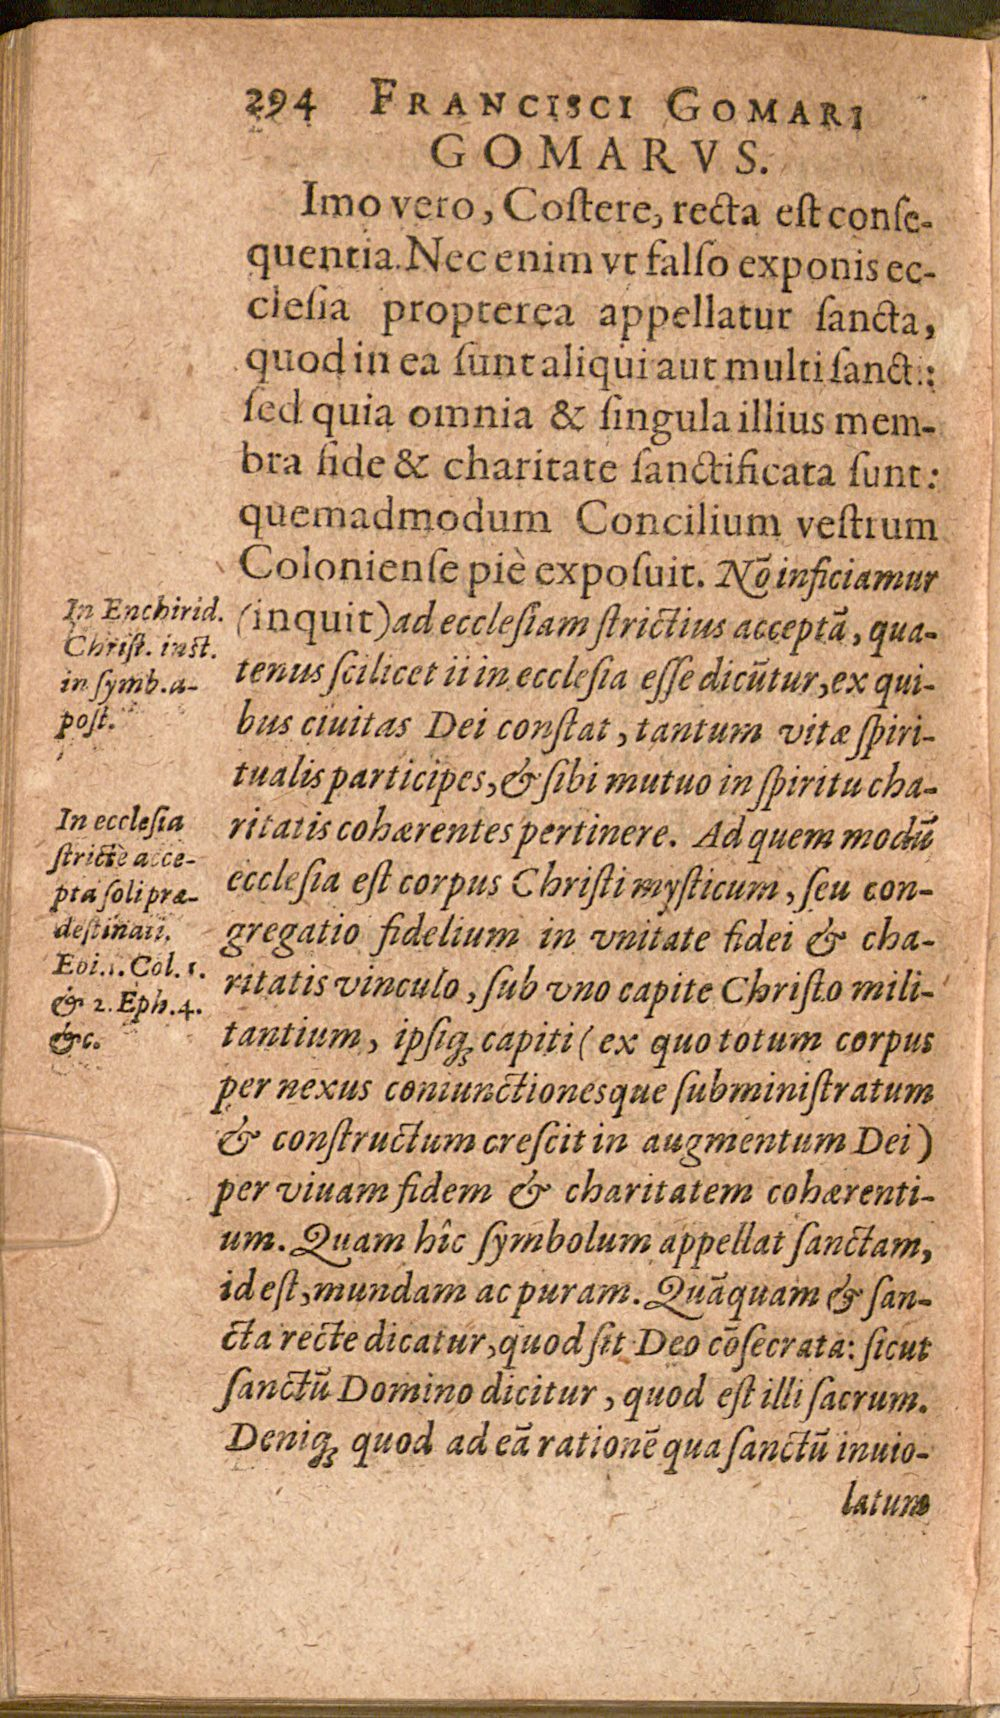 294 FRANCISCI GOMARI
GOMARVS.
Imo vero, Coſtere, recta eſt conſe-
quentia. Nec enim vt falſo exponis ec-
cleſia propterea appellatur ſancta,
quod in ea ſunt aliqui aut multi ſanct.:
ſed quia omnia & ſingula illius mem-
bra fide & charitate ſanctificata ſunt:
quemadmodum Concilium veſtrum
Colonienſe piè expoſuit. Nō inficiamur
(inquit) ad eccleſiam ſtrictius acceptā, qua-
tenus ſcilicet ii in eccleſia eſſe dicūtur, ex qui-
bus ciuitas Dei conſtat, tantum vitæ ſpiri-
tualis participes, & ſibi mutuo in ſpiritu cha-
ritatis cohærentes pertinere. Ad quem modū
eccleſia eſt corpus Chriſti myſticum, ſeu con-
gregatio fidelium in vnitate fidei & cha-
ritatis vinculo, ſub vno capite Chriſto mili-
tantium, ipſiq; capiti (ex quo totum corpus
per nexus coniunctionesque ſubminiſtratum
& conſtructum creſcit in augmentum Dei)
per viuam fidem & charitatem cohærenti-
um. Quam hîc ſymbolum appellat ſanctam,
id eſt, mundam ac puram. Quāquam & ſan-
cta recte dicatur, quod ſit Deo cōſecrata: ſicut
ſanctū Domino dicitur, quod eſt illi ſacrum.
Deniq; quod ad eā rationē qua ſanctū inuio-
latum
In Enchirid.
Chriſt. inſt.
in ſymb. a-
poſt.
In eccleſia
ſtrictè acce-
pta ſoli præ-
deſtinati.
Eoi. 1. Col. 1.
& 2. Eph. 4.
&c.